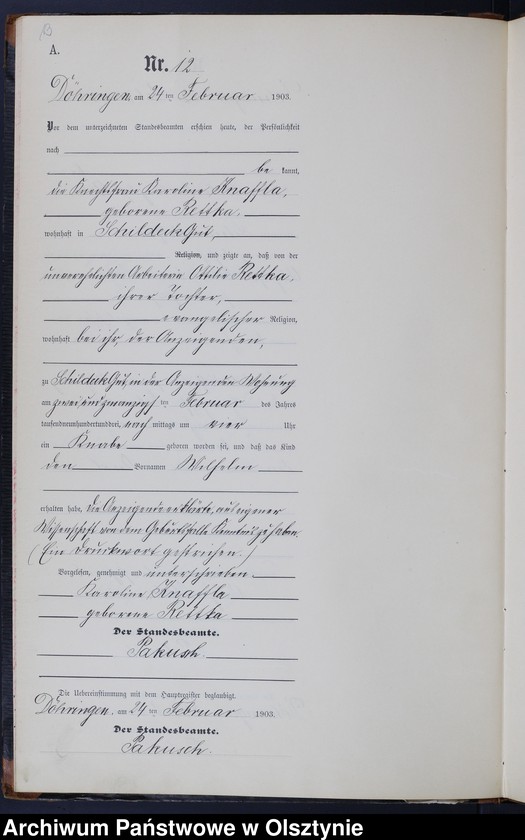 A.
Nr. 12
Döhringen, am 24 ten Februar 1903.
Vor dem unterzeichneten Standesbeamten erschien heute, der Persönlichkeit
nach
be kannt,
die Knechtsfrau Karoline Knaffla,
geborene Rettka,
wohnhaft in Schildeck Gut,
Religion, und zeigte an, daß von der
unverehelichten Arbeiterin Ottilie Rettka,
ihrer Tochter,
evangelischer Religion,
wohnhaft bei ihr, der Anzeigenden,
zu Schildeck Gut, in der Anzeigenden Wohnung
am zwei und zwanzigsten Februar des Jahres
tausendneunhundertunddrei, nach mittags um vier Uhr
ein Knabe geboren worden sei, und daß das Kind
den Vornamen Wilhelm
erhalten habe, die Anzeigende erklärte, aus eigener
Wissenschaft von dem Geburtsfalle Kenntnis zu haben.
(Ein Druckwort gestrichen.)
Vorgelesen, genehmigt und unterschrieben
Karoline Knaffla
geborene Rettka
Der Standesbeamte.
Pakusch.
Die Uebereinstimmung mit dem Hauptregister beglaubigt.
Döhringen, am 24 ten Februar 1903.
Der Standesbeamte.
Pakusch.
Archiwum Państwowe w Olsztynie